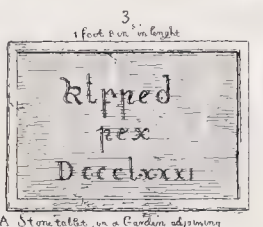 3
1 foot 8 in.s in lenght
klpped
pex
Dccclxxxi
A Stone tablet, in a Garden adjoining